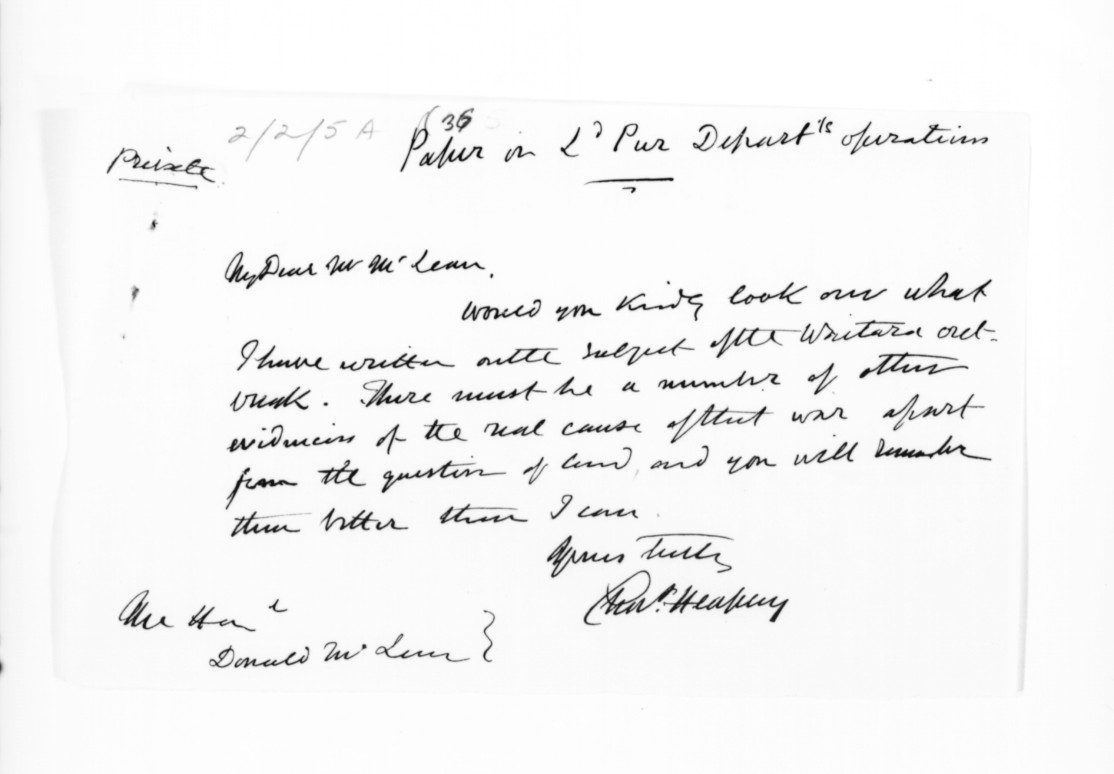 2/2/5 A
36
Paper on Ld Pur Depart'ts operations
Private
My Dear Mr McLean,
Would you kindly look over what
I have written on the subject of the Waitara out-
break. There must be a number of other
evidences of the real cause of that war apart
from the question of land, and you will remember
them better than I can.
Yours truly
Chas. Heaphy
The Honl
Donald McLean